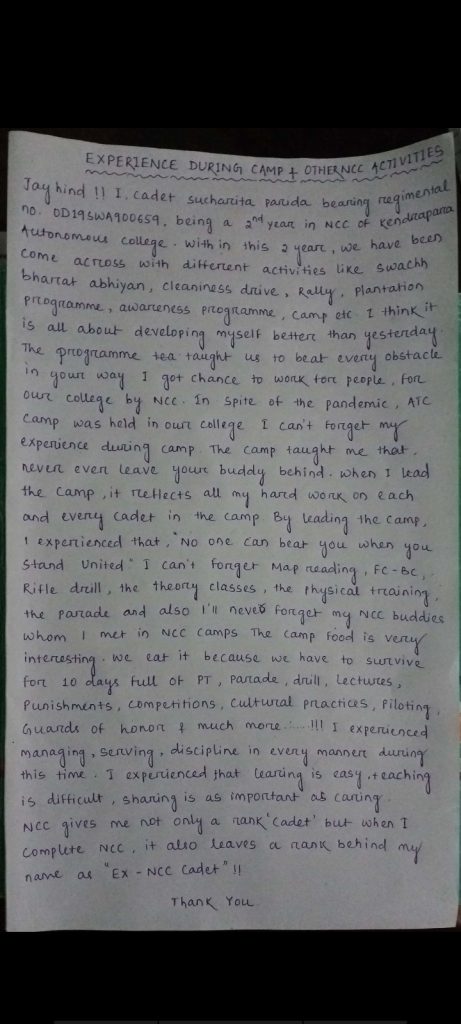 EXPERIENCE DURING CAMP & OTHER NCC ACTIVITIES
Jay hind !! I, cadet sucharita parida bearing regimental
no. OD19SWA900659, being a 2nd year in NCC of Kendrapara
Autonomous college. within this 2 year, we have been
come across with different activities like swachh
bharat abhiyan, cleaniness drive, Rally, plantation
programme, awareness programme, camp etc. I think it
is all about developing myself better than yesterday.
The programme tea taught us to beat every obstacle
in your way I got chance to work for people, for
our college by NCC. In spite of the pandemic, ATC
camp was held in our college I can't forget my
experience during camp. The camp taught me that,
never ever leave your buddy behind. when I lead
the camp, it reflects all my hard work on each
and every cadet in the camp By leading the camp,
I experienced that, "No one can beat you when you
stand United" I can't forget Map reading, FC-BC,
Rifle drill, the theory classes, the physical training,
the parade and also I'll never forget my NCC buddies
whom I met in NCC camps The camp food is very
interesting. we eat it because we have to survive
for 10 days full of PT, parade, drill, Lectures,
Punishments, competitions, cultural practices, Piloting,
Guards of honor & much more......!!! I experienced
managing, serving, discipline in every manner during
this time. I experienced that learing is easy, teaching
is difficult, sharing is as important as caring.
NCC gives me not only a rank 'cadet' but when I
complete NCC, it also leaves a rank behind my
name as "Ex-NCC Cadet" !!
Thank You